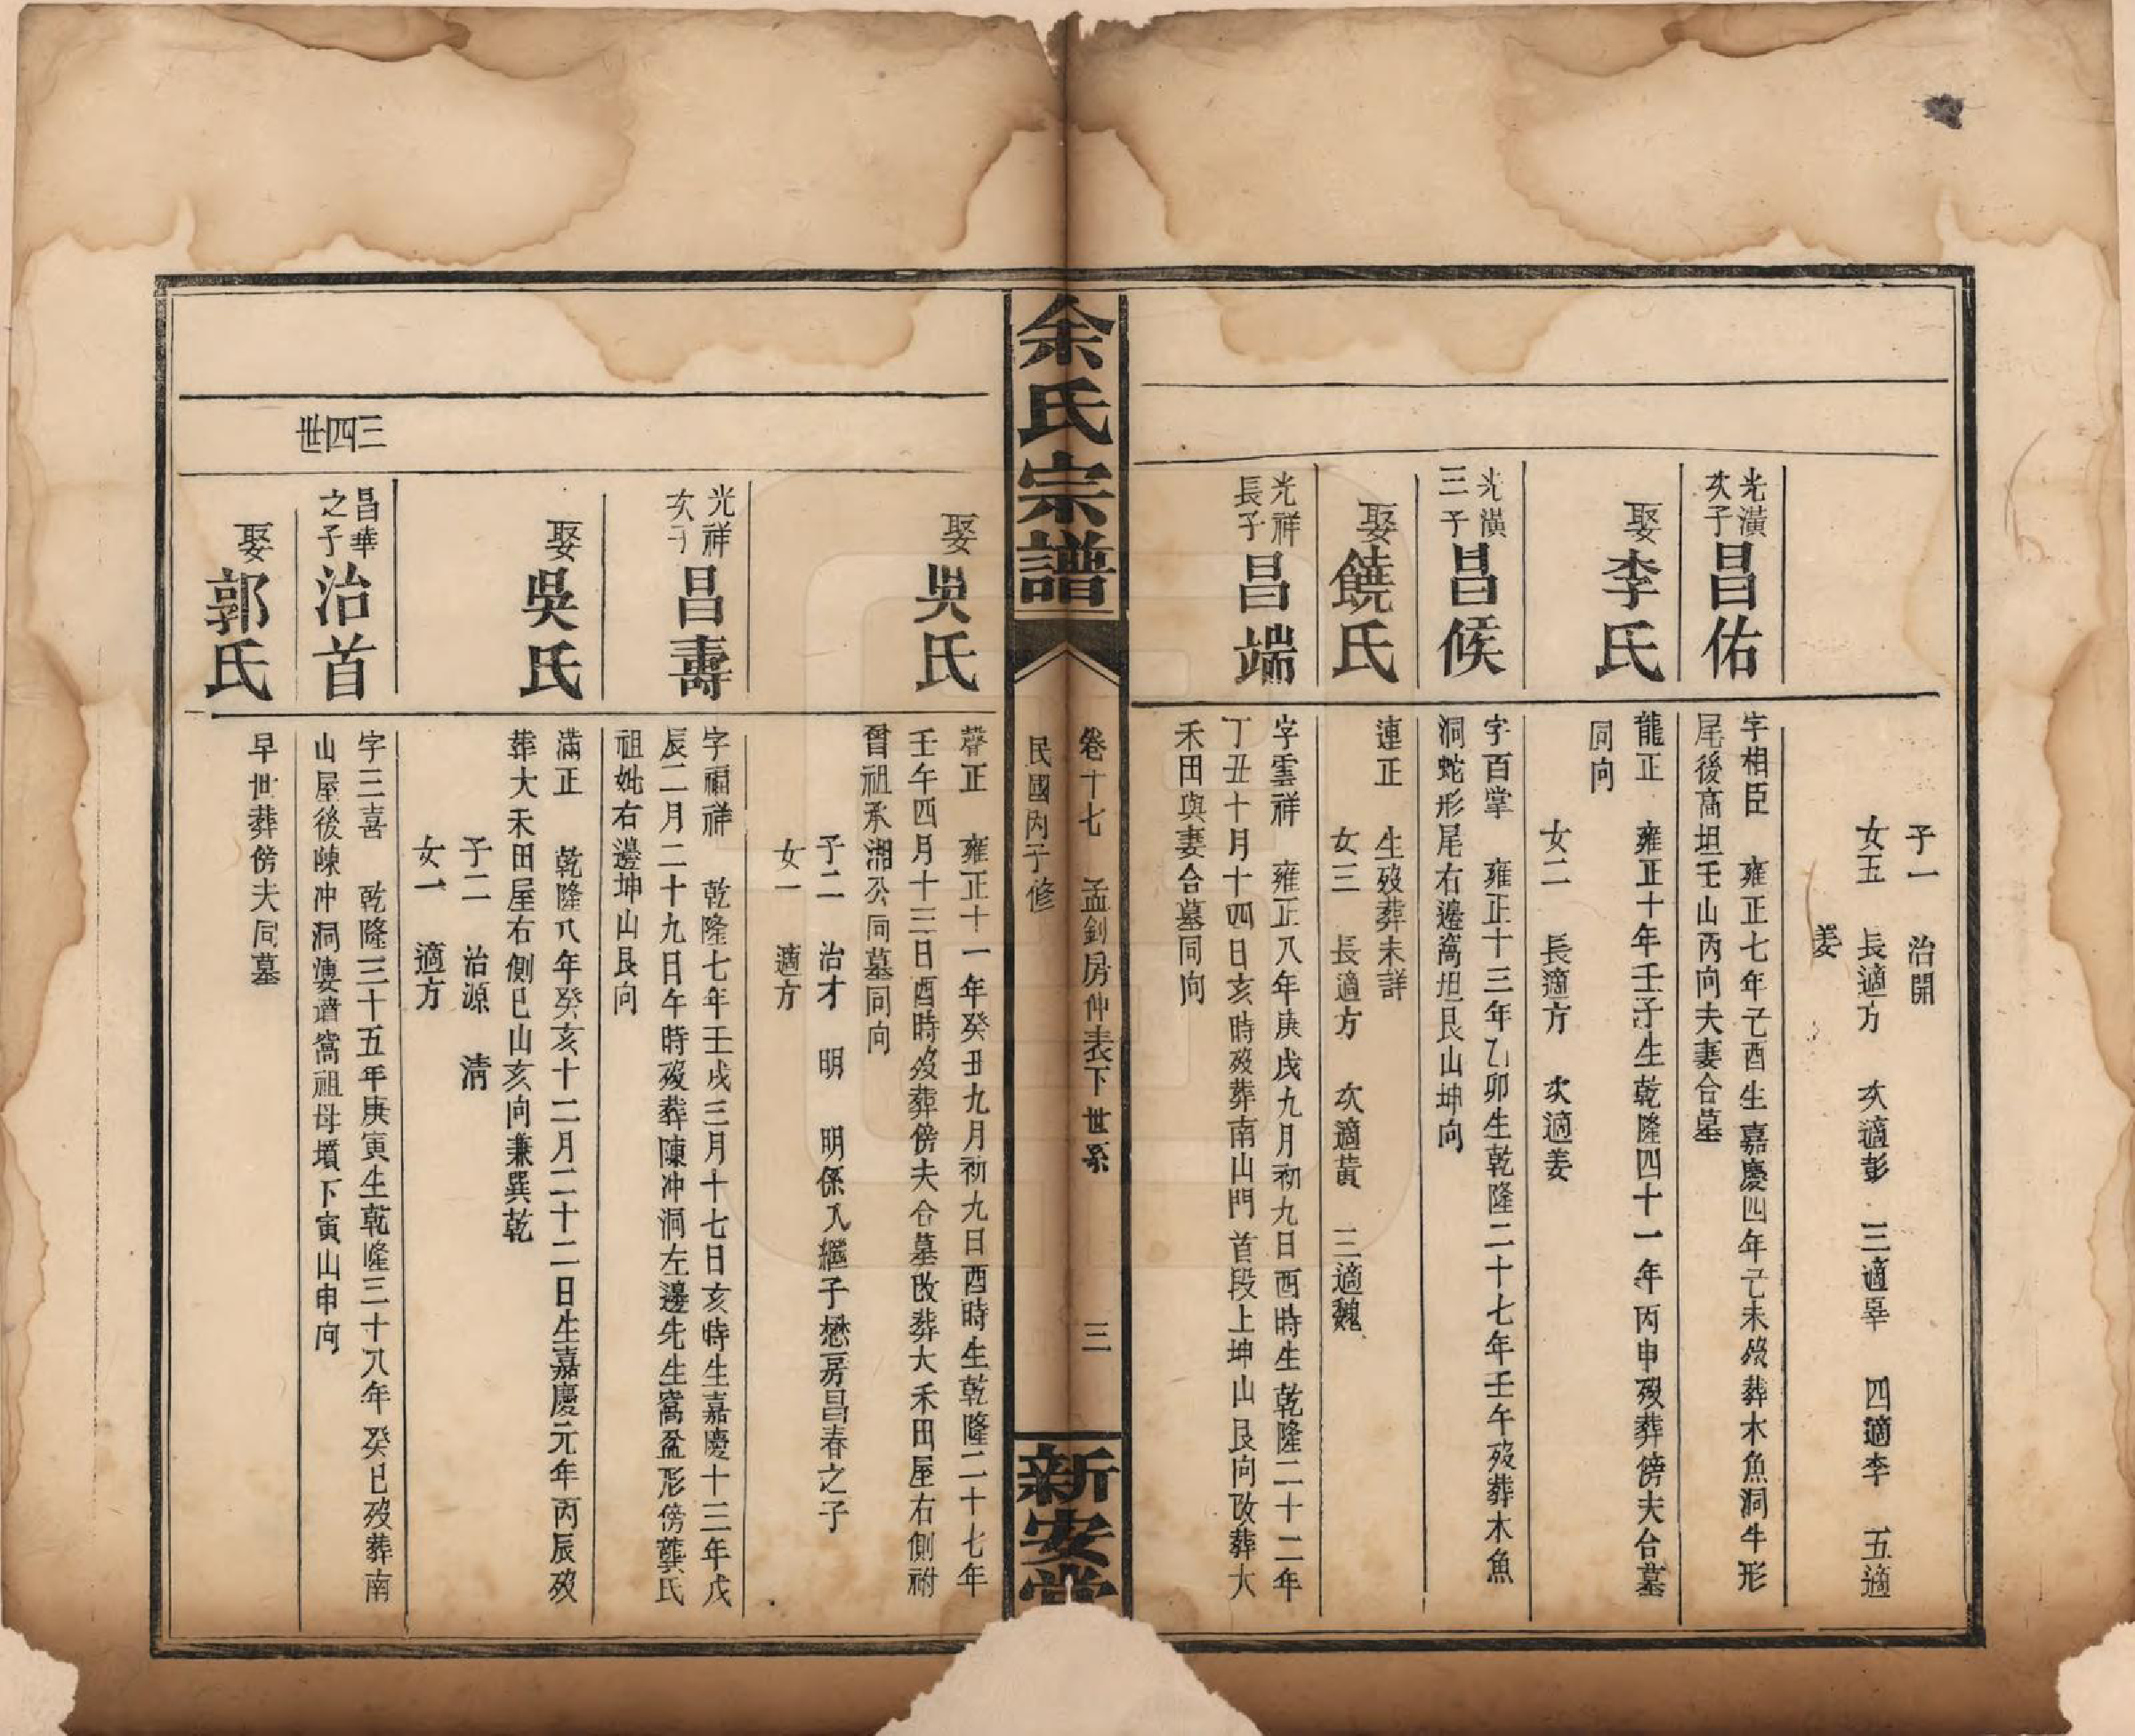 子一　治開
女五　長適方　次適彭　三適辜　四適李　五適
姜
光潢
次子
昌佑
字相臣　雍正七年己酉生嘉慶四年己未歿葬木魚洞牛形
尾後高坦壬山丙向夫妻合墓
娶李氏
龍正　雍正十年壬子生乾隆四十一年丙申歿葬傍夫合墓
同向
女二　長適方　次適姜
光潢
三子
昌候
字百掌　雍正十三年乙卯生乾隆二十七年壬午歿葬木魚
洞蛇形尾右邊窩坦艮山坤向
娶饒氏
連正　生歿葬未詳
女三　長適方　次適黃　三適魏
光祥
長子
昌端
字雲祥　雍正八年庚戌九月初九日酉時生乾隆二十二年
丁丑十月十四日亥時歿葬南山門首段上坤山艮向改葬大
禾田與妻合墓同向
余氏宗譜
卷十七　孟釗房仲表下世系　三
民國丙子修
新安堂
娶吳氏
聲正　雍正十一年癸丑九月初九日酉時生乾隆二十七年
壬午四月十三日酉時歿葬傍夫合墓改葬大禾田屋右側祔
曾祖承湘公同墓同向
子二　治才　明　明係入繼子懋房昌春之子
女一　適方
光祥
次子
昌壽
字福祥　乾隆七年壬戌三月十七日亥時生嘉慶十三年戊
辰二月二十九日午時歿葬陳冲洞左邊先生窩盆形傍龔氏
祖妣右邊坤山艮向
娶吳氏
滿正　乾隆八年癸亥十二月二十二日生嘉慶元年丙辰歿
葬大禾田屋右側巳山亥向兼巽乾
子二　治源　清
女一　適方
三四世
昌華
之子
治首
字三喜　乾隆三十五年庚寅生乾隆三十八年癸巳歿葬南
山屋後陳冲洞窩祖母墳下寅山申向
娶郭氏
早世葬傍夫同墓